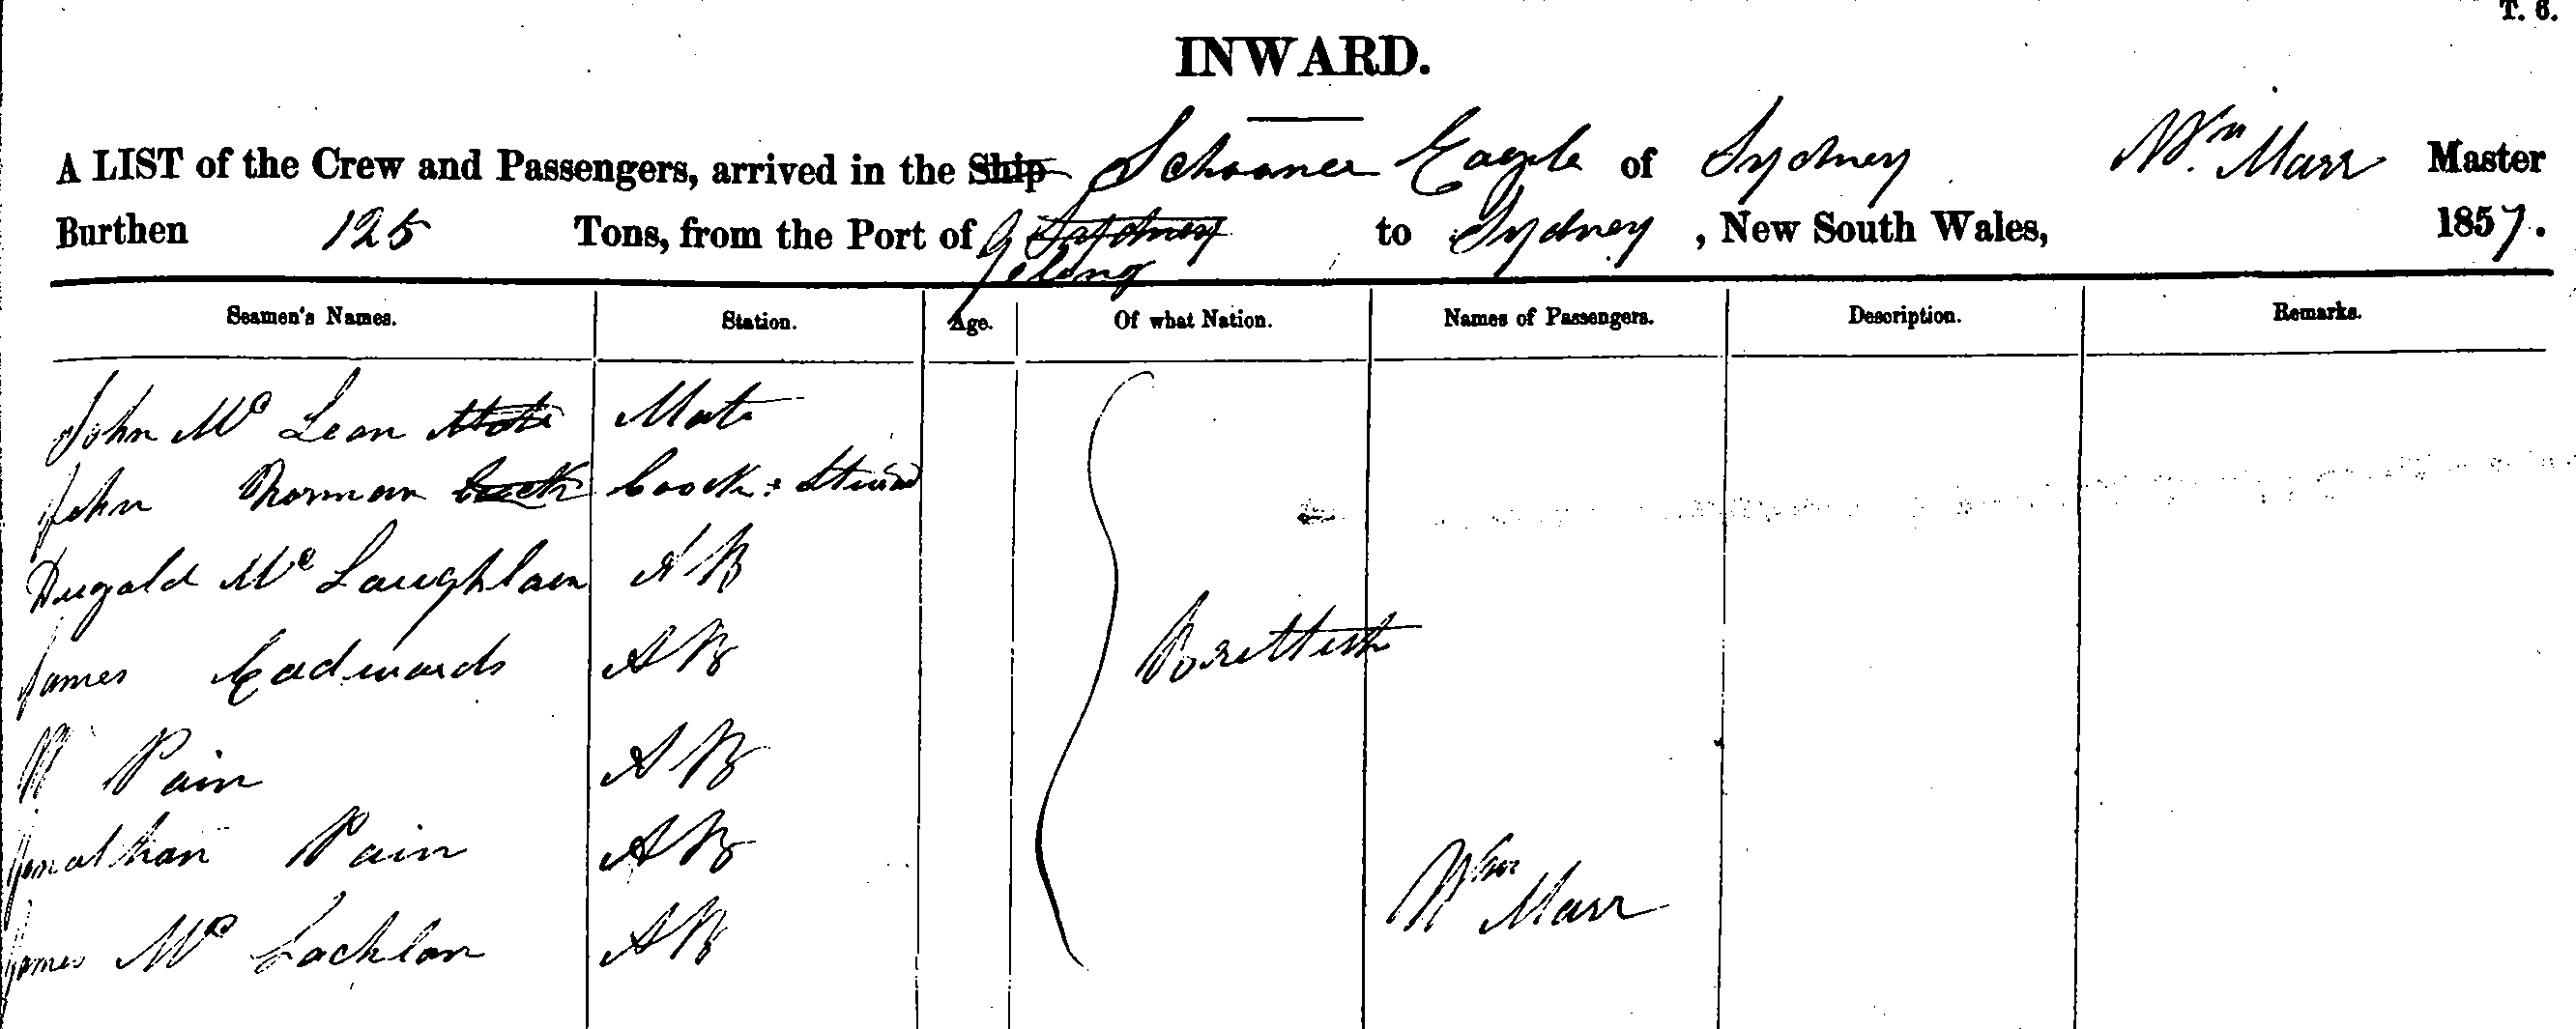 T. 6.
INWARD.
A LIST of the Crew and Passengers, arrived in the Ship Schooner Eagle of Sydney Wm. Marr Master
Burthen 125 Tons, from the Port of Sydney Gelong to Sydney, New South Wales, 1857.
Seamen's Names. Station. Age. Of what Nation. Names of Passengers. Description. Remarks.
John Mc Lean Mate Mate
John Norman Coock Coock & Stuard
Dugald Mc Laughlain AB
James Eadwards AB Brittish
W Pain AB
Jonathan Pain AB
Wm Marr
James Mc Lachlan AB